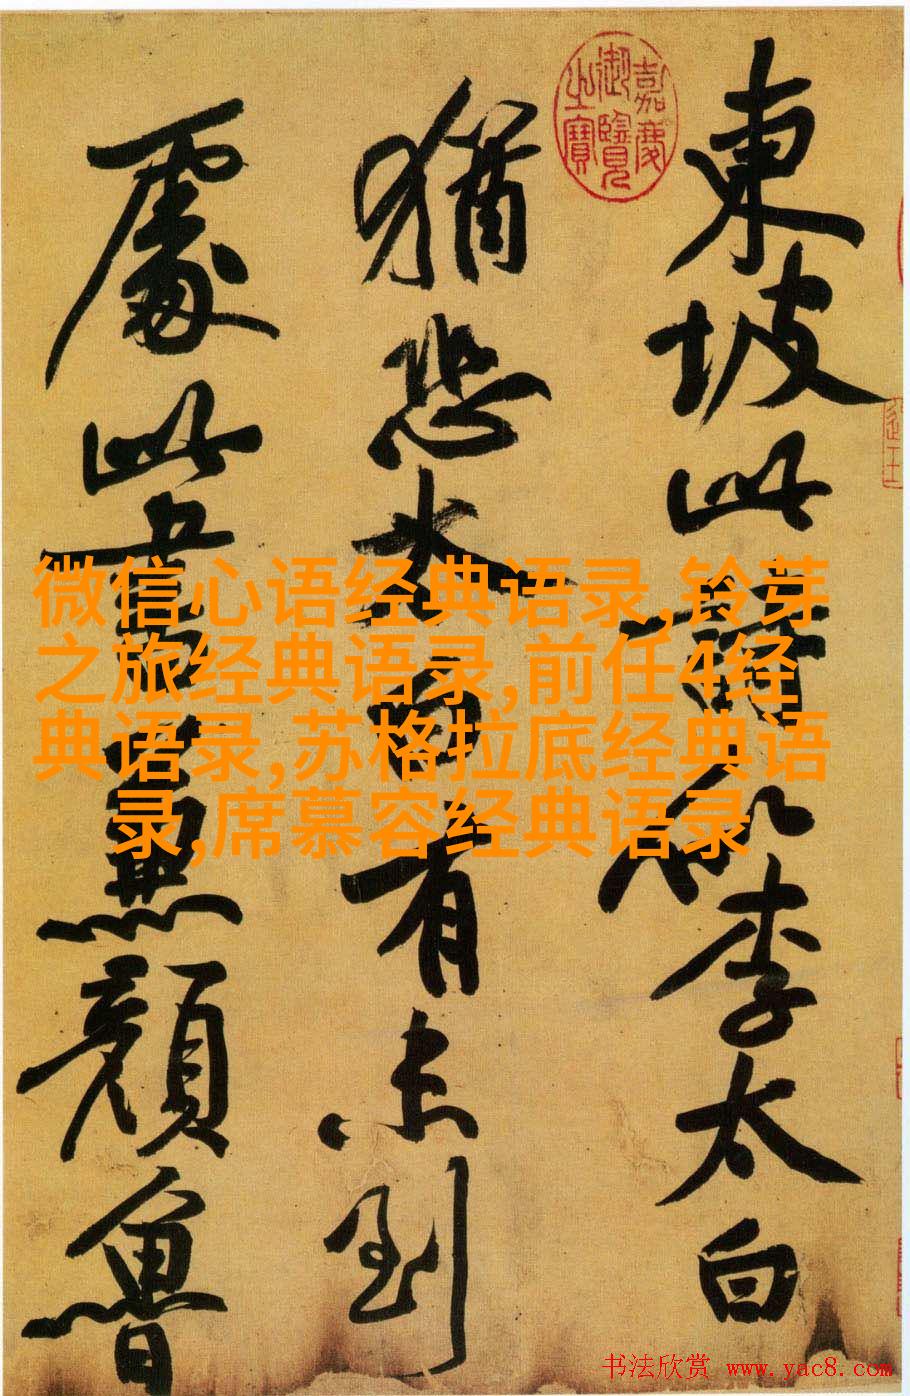 東坡此詩似李太白
猶恐太白有未到
處此書兼顏魯
嘉慶
御覽
之寶
微信心语经典语录,铃芽
之旅经典语录,前任4经
典语录,苏格拉底经典语
录,席慕容经典语录
书法欣赏 www.yac8.com